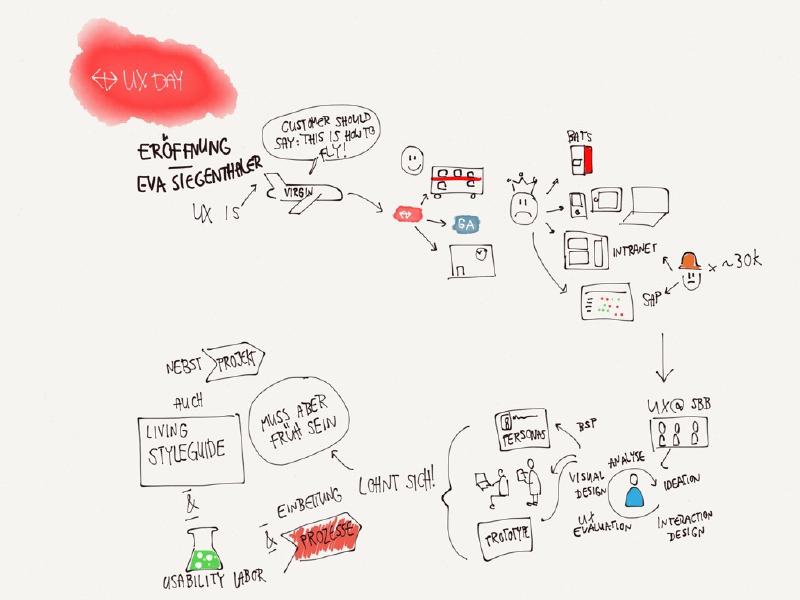 UX DAY
ERÖFFNUNG
EVA SIEGENTHALER
UX IS
VIRGIN
CUSTOMER SHOULD
SAY: THIS IS HOW TO
FLY!
GA
BATS
INTRANET
SAP
x ~30k
UX@SBB
ANALYSE
IDEATION
INTERACTION
DESIGN
UX
EVALUATION
VISUAL
DESIGN
BSP
PERSONAS
PROTOTYPE
LOHNT SICH!
MUSS ABER
FRÜH SEIN
NEBST PROJEKT
AUCH
LIVING
STYLEGUIDE
&
USABILITY LABOR
&
EINBETTUNG
PROZESSE